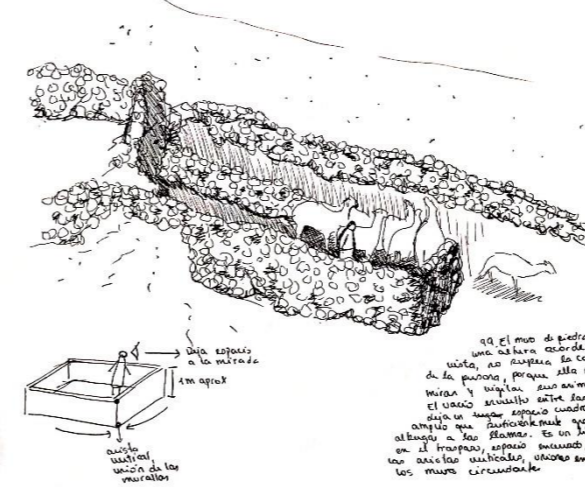 Deja espacio
a la mirada
1m aprox
arista
vertical,
unión de las
murallas
99. El muro de piedra
una altura acorde
vista, no supera la ca
de la persona, porque ella
mirar y vigilar sus anim
El vacío envuelto entre las
deja un espacio cuadra
amplio que suficientemente
albergar a las llamas. Es un
en el traspaso, espacio
las aristas verticales, uniones en
los muros circundante